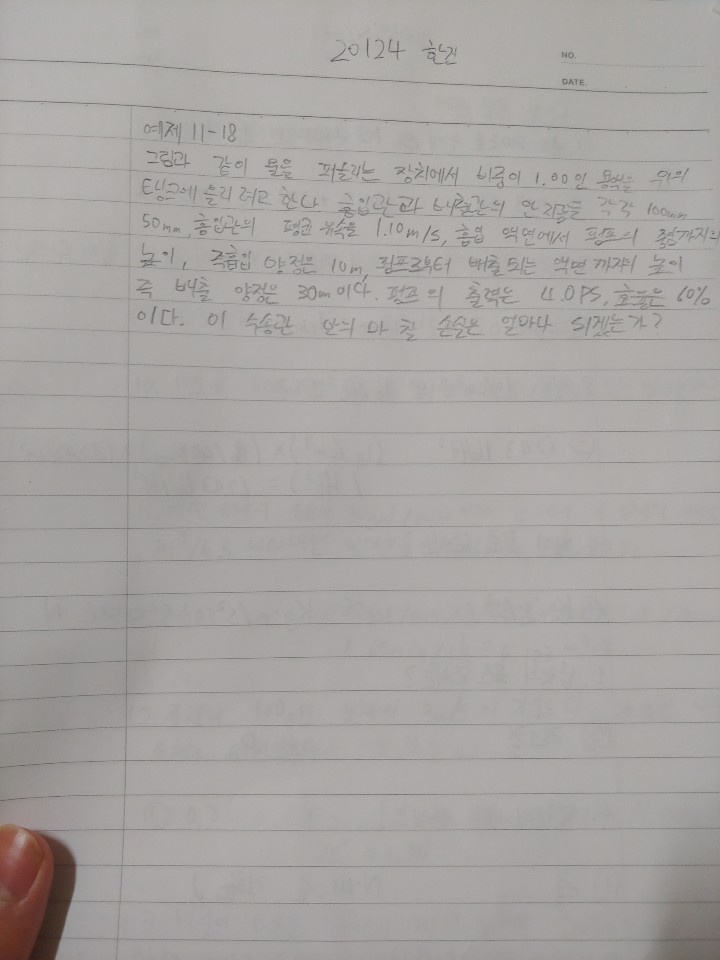 20124
NO.
DATE.
예제 11-18
그림과 같이 물을 퍼올리는 장치에서 비중이 1.00인 용액을 위의
탱크에 올리려고 한다. 흡입관과 배출관의 안지름은 각각 100mm
50mm, 흡입관의 평균 유속을 1.10m/s, 흡입 액면에서 펌프의 중심까지의
높이, 즉흡입 양정은 10m, 펌프로부터 배출되는 액면까지의 높이
즉 배출 양정은 30m이다. 펌프의 출력은 PS, 효율은 60%
이다. 이 수송관 안의 마찰 손실은 얼마나 되겠는가?